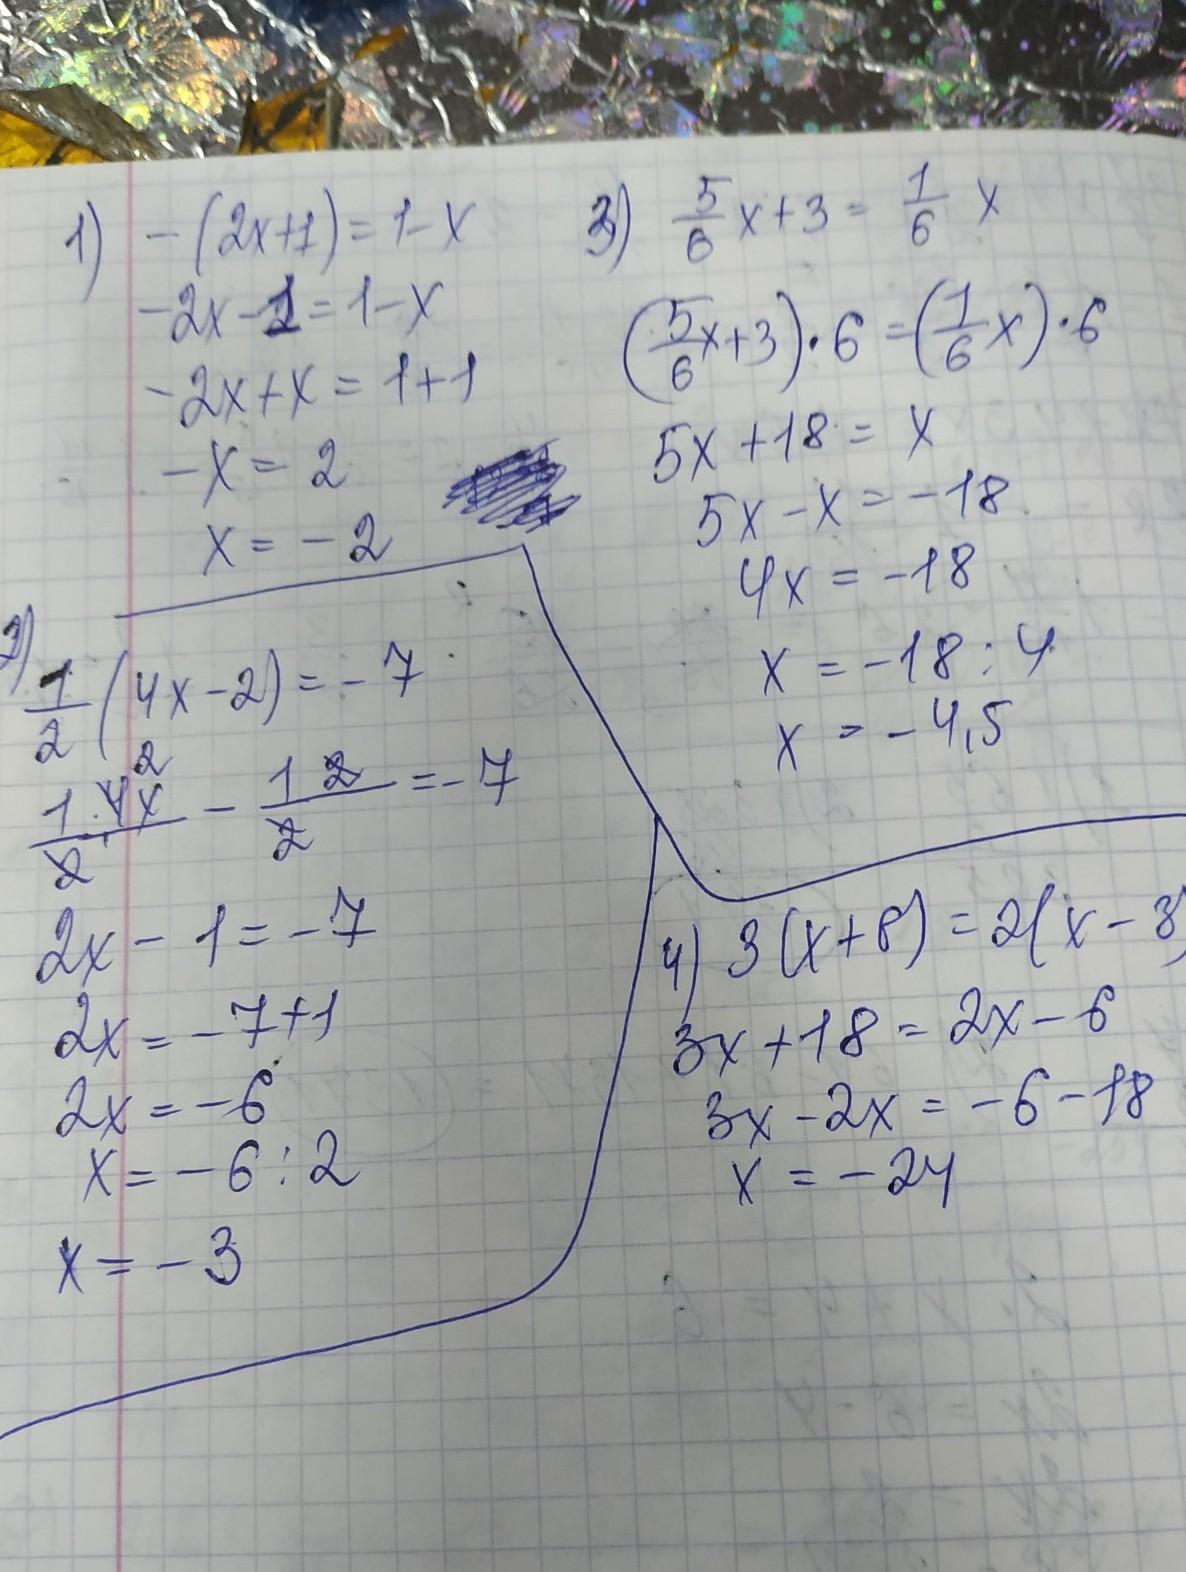 1) -(2x+1)=1-x
-2x-1=1-x
-2x+x=1+1
-x=2
x=-2
2)
1/2(4x-2)=-7
1·4x/2 - 1 2/2 =-7
2
2x-1=-7
2x=-7+1
2x=-6
x=-6:2
x=-3
3) 5/6x+3=1/6x
(5/6x+3)·6=(1/6x)·6
5x+18=x
5x-x=-18
4x=-18
x=-18:4
x=-4,5
4) 3(x+8)=2(x-3)
3x+18=2x-6
3x-2x=-6-18
x=-24